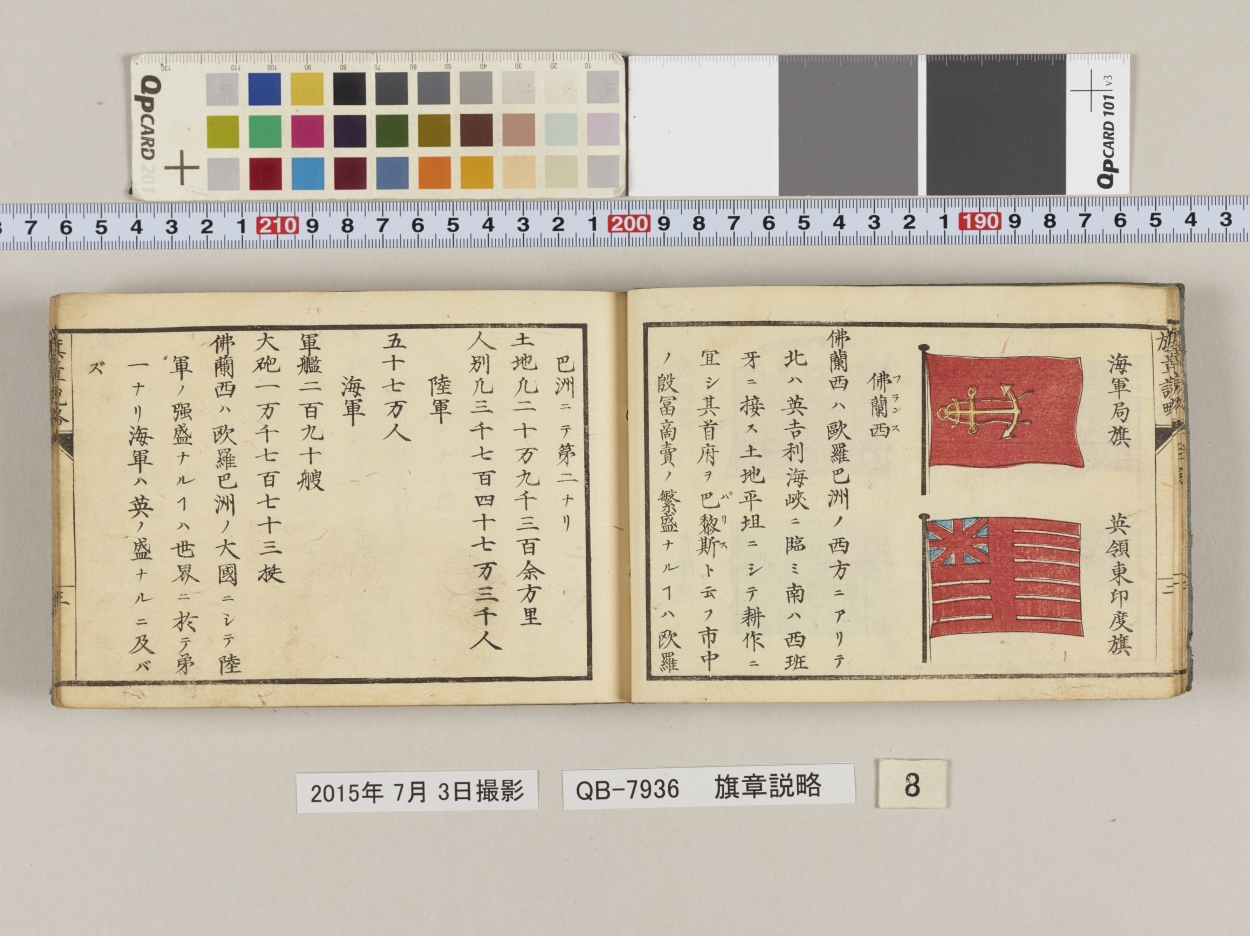 QPCARD 201
QPCARD 101 v3
130 110 100 90 80 70 60 50 40 30 20 10
7 6 5 4 3 2 1 210 9 8 7 6 5 4 3 2 1 200 9 8 7 6 5 4 3 2 1 190 9 8 7 6 5 4 3
旗章説略
海軍局旗
英領東印度旗
佛蘭西
フランス
佛蘭西ハ歐羅巴洲ノ西方ニアリテ
北ハ英吉利海峽ニ臨ミ南ハ西班
牙ニ接ス土地平坦ニシテ耕作ニ
宜シ其首府ヲ巴黎斯ト云フ市中
パリス
ノ殷冨商賣ノ繁盛ナルヿハ欧羅
巴洲ニテ第二ナリ
土地凡二十万九千三百余方里
人别凡三千七百四十七万三千人
陸軍
五十七万人
海軍
軍艦二百九十艘
大砲一万千七百七十三挺
佛蘭西ハ欧羅巴洲ノ大國ニシテ陸
軍ノ强盛ナルヿハ世界ニ於テ第
一ナリ海軍ハ英ノ盛ナルニ及バ
ズ
2015年 7月 3日撮影
QB-7936 旗章説略
8